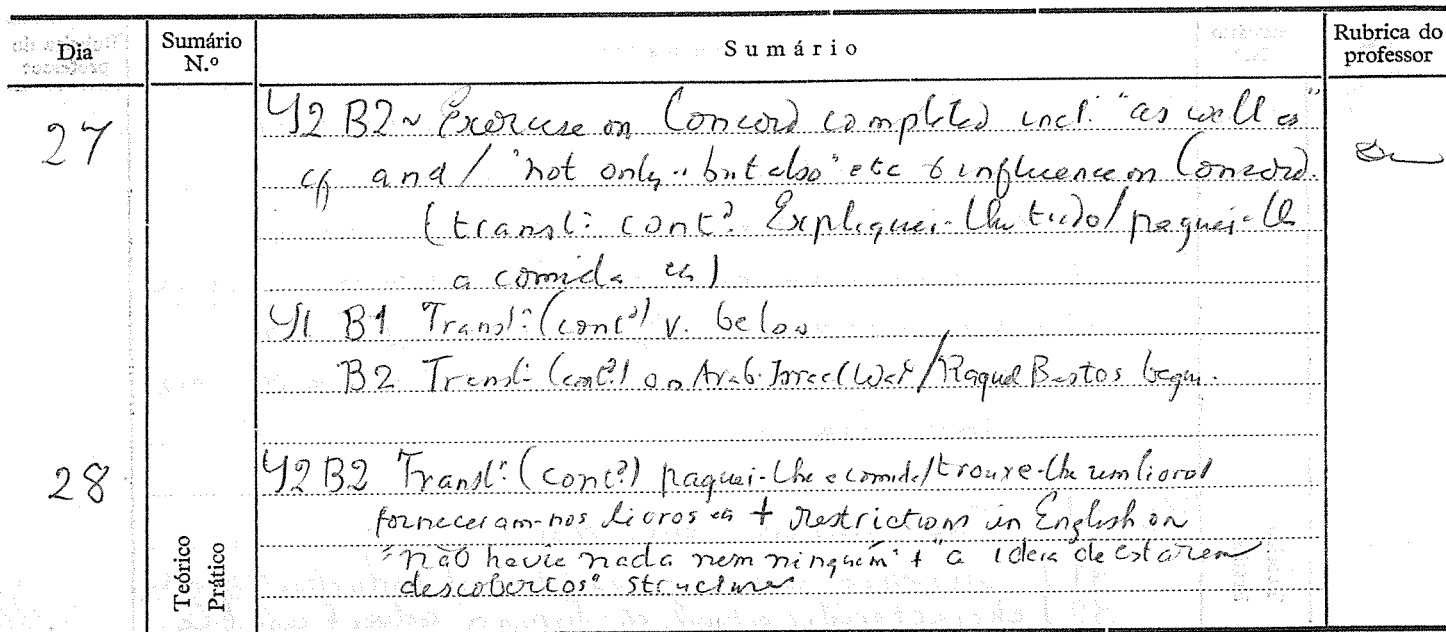 Dia
Sumário N.º
Sumário
Rubrica do professor
27
Y2 B2 ~ Exercise on Concord completed incl. "as well as"
cf and / "not only .. but also" etc & influence on Concord.
(transl: contd. Expliquei-lhe tudo / paguei-lhe
a comida etc)
Y1 B1 Transl: (contd) v. below
B2 Transl: (contd) on Arab-Israel War / Raquel Bastos begun.
28
Y2 B2 Transl: (contd) paguei-lhe a comida / trouxe-lhe um livro /
forneceram-nos livros etc + restrictions in English on
"não havia nada nem ninguém" + "a ideia de estarem
descobertos" structures
Teórico
Prático